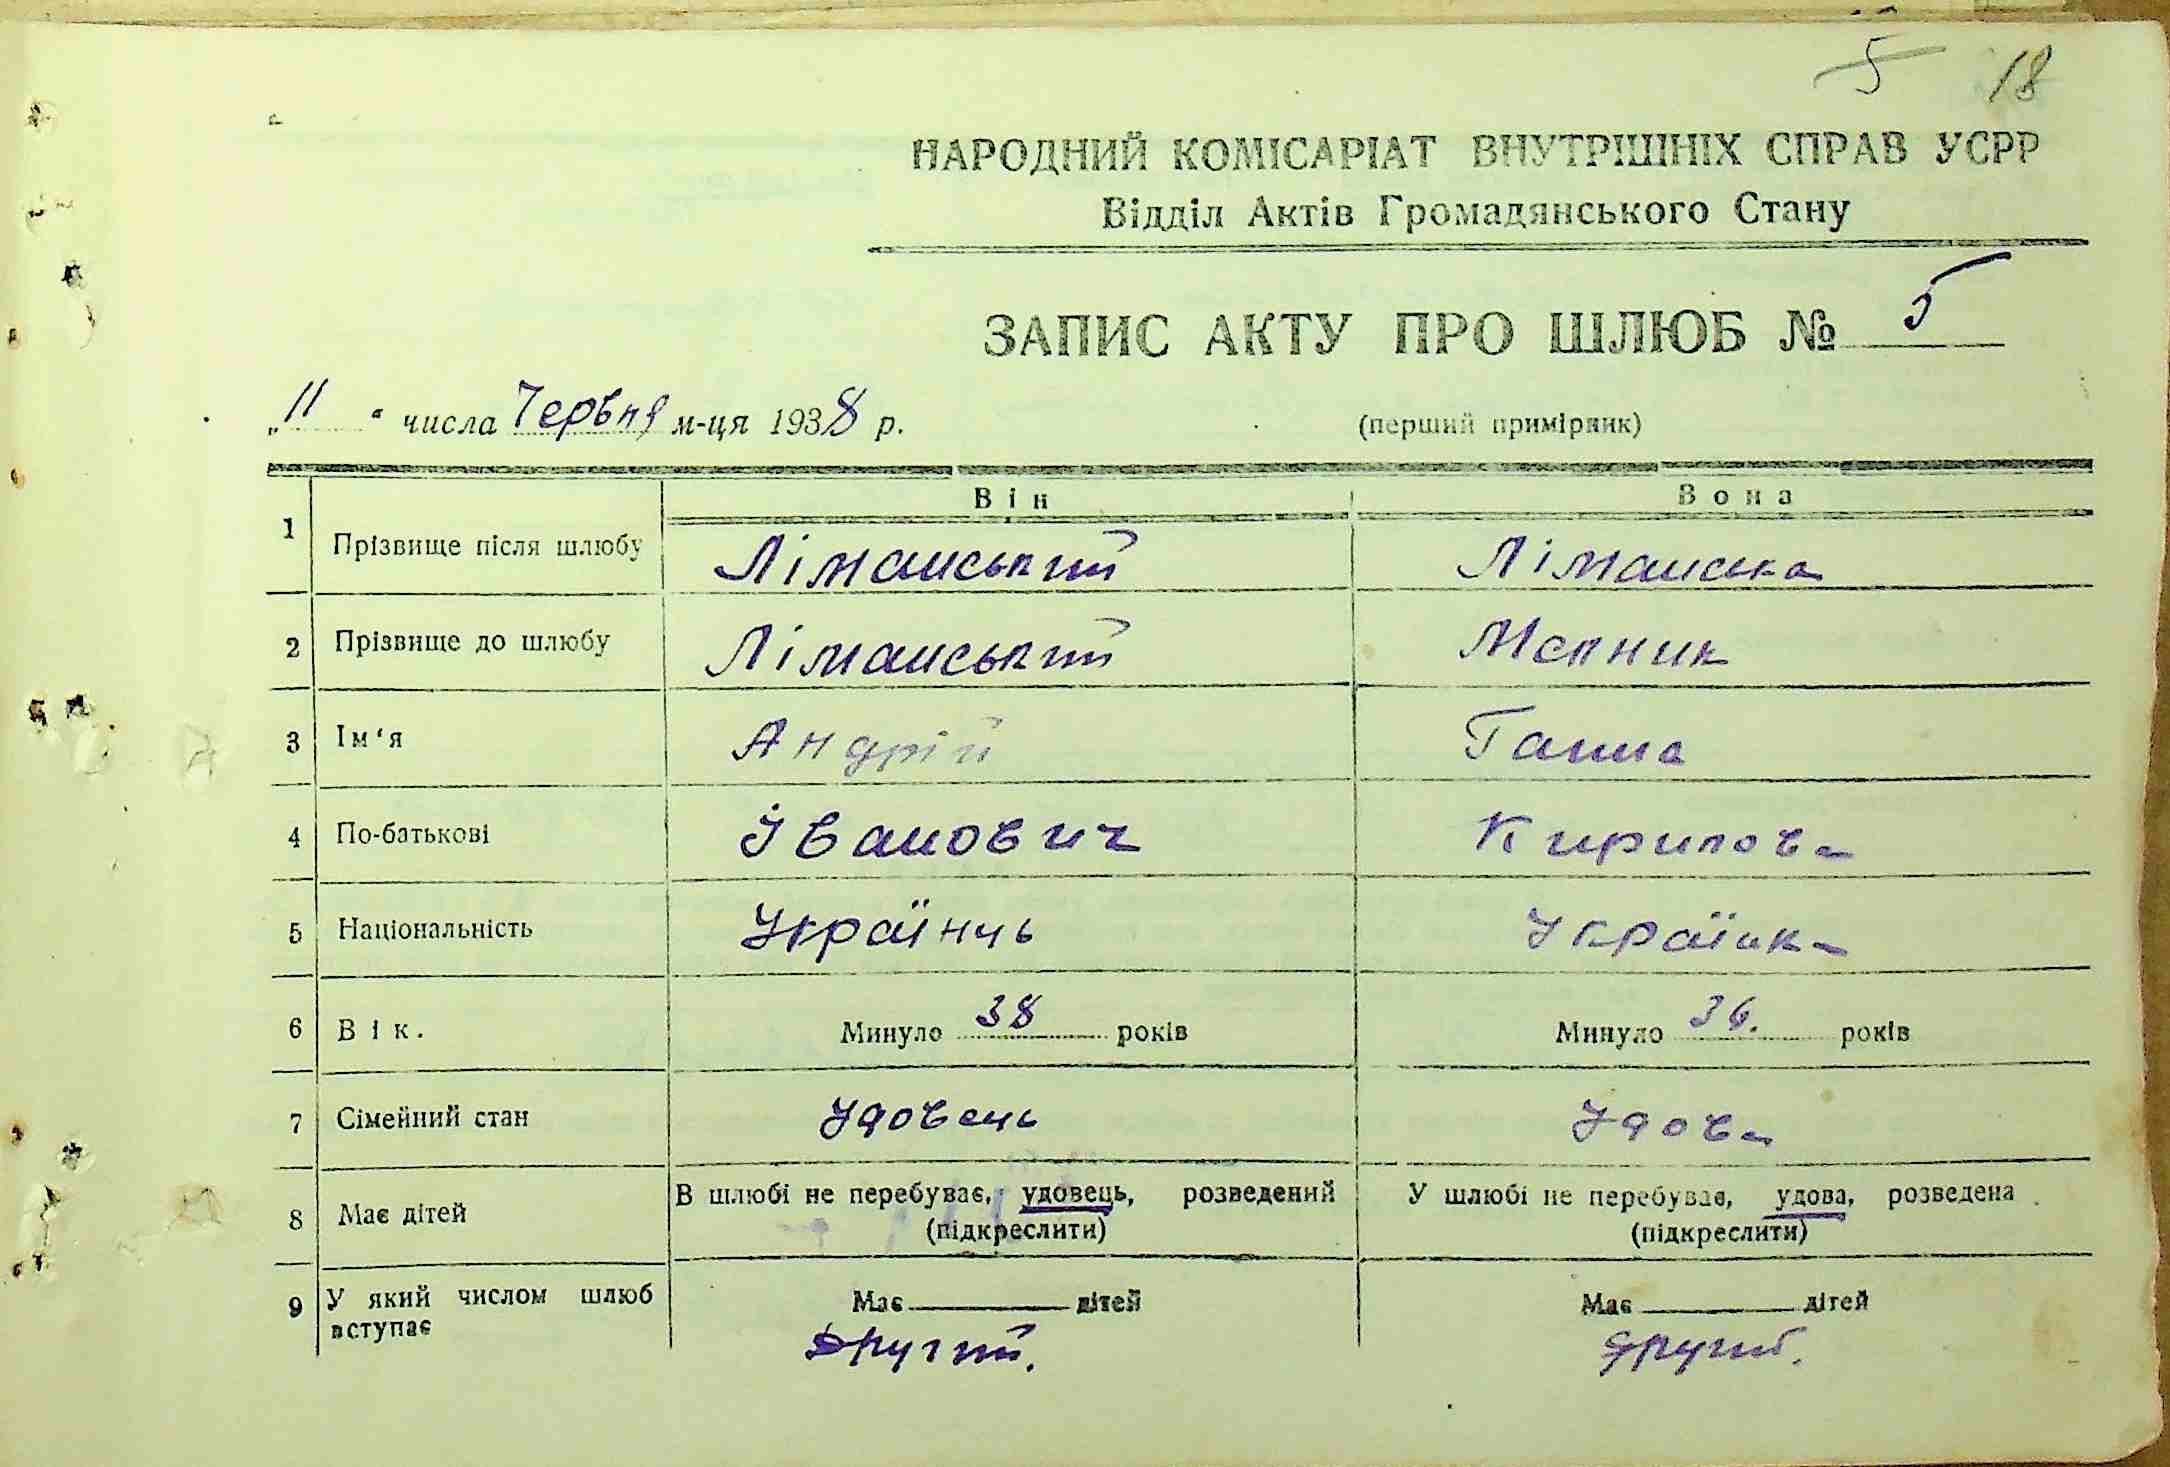 5 18
НАРОДНИЙ КОМІСАРІАТ ВНУТРІШНІХ СПРАВ УСРР
Відділ Актів Громадянського Стану
ЗАПИС АКТУ ПРО ШЛЮБ № 5
„11“ числа Червня м-ця 1938 р.
(перший примірник)
Він Вона
1 Прізвище після шлюбу Ліманський Ліманска
2 Прізвище до шлюбу Ліманський
3 Ім'я Андрій Ганна
4 По-батькові Іванович Кирилова
5 Національність Українць Українка
6 Вік. Минуло 38 років Минуло 36. років
7 Сімейний стан Удовець Удова
8 Має дітей В шлюбі не перебуває, удовець, розведений У шлюбі не перебуває, удова, розведена
(підкреслити) (підкреслити)
9 У який числом шлюб вступає Має дітей Має дітей
другий. другий.